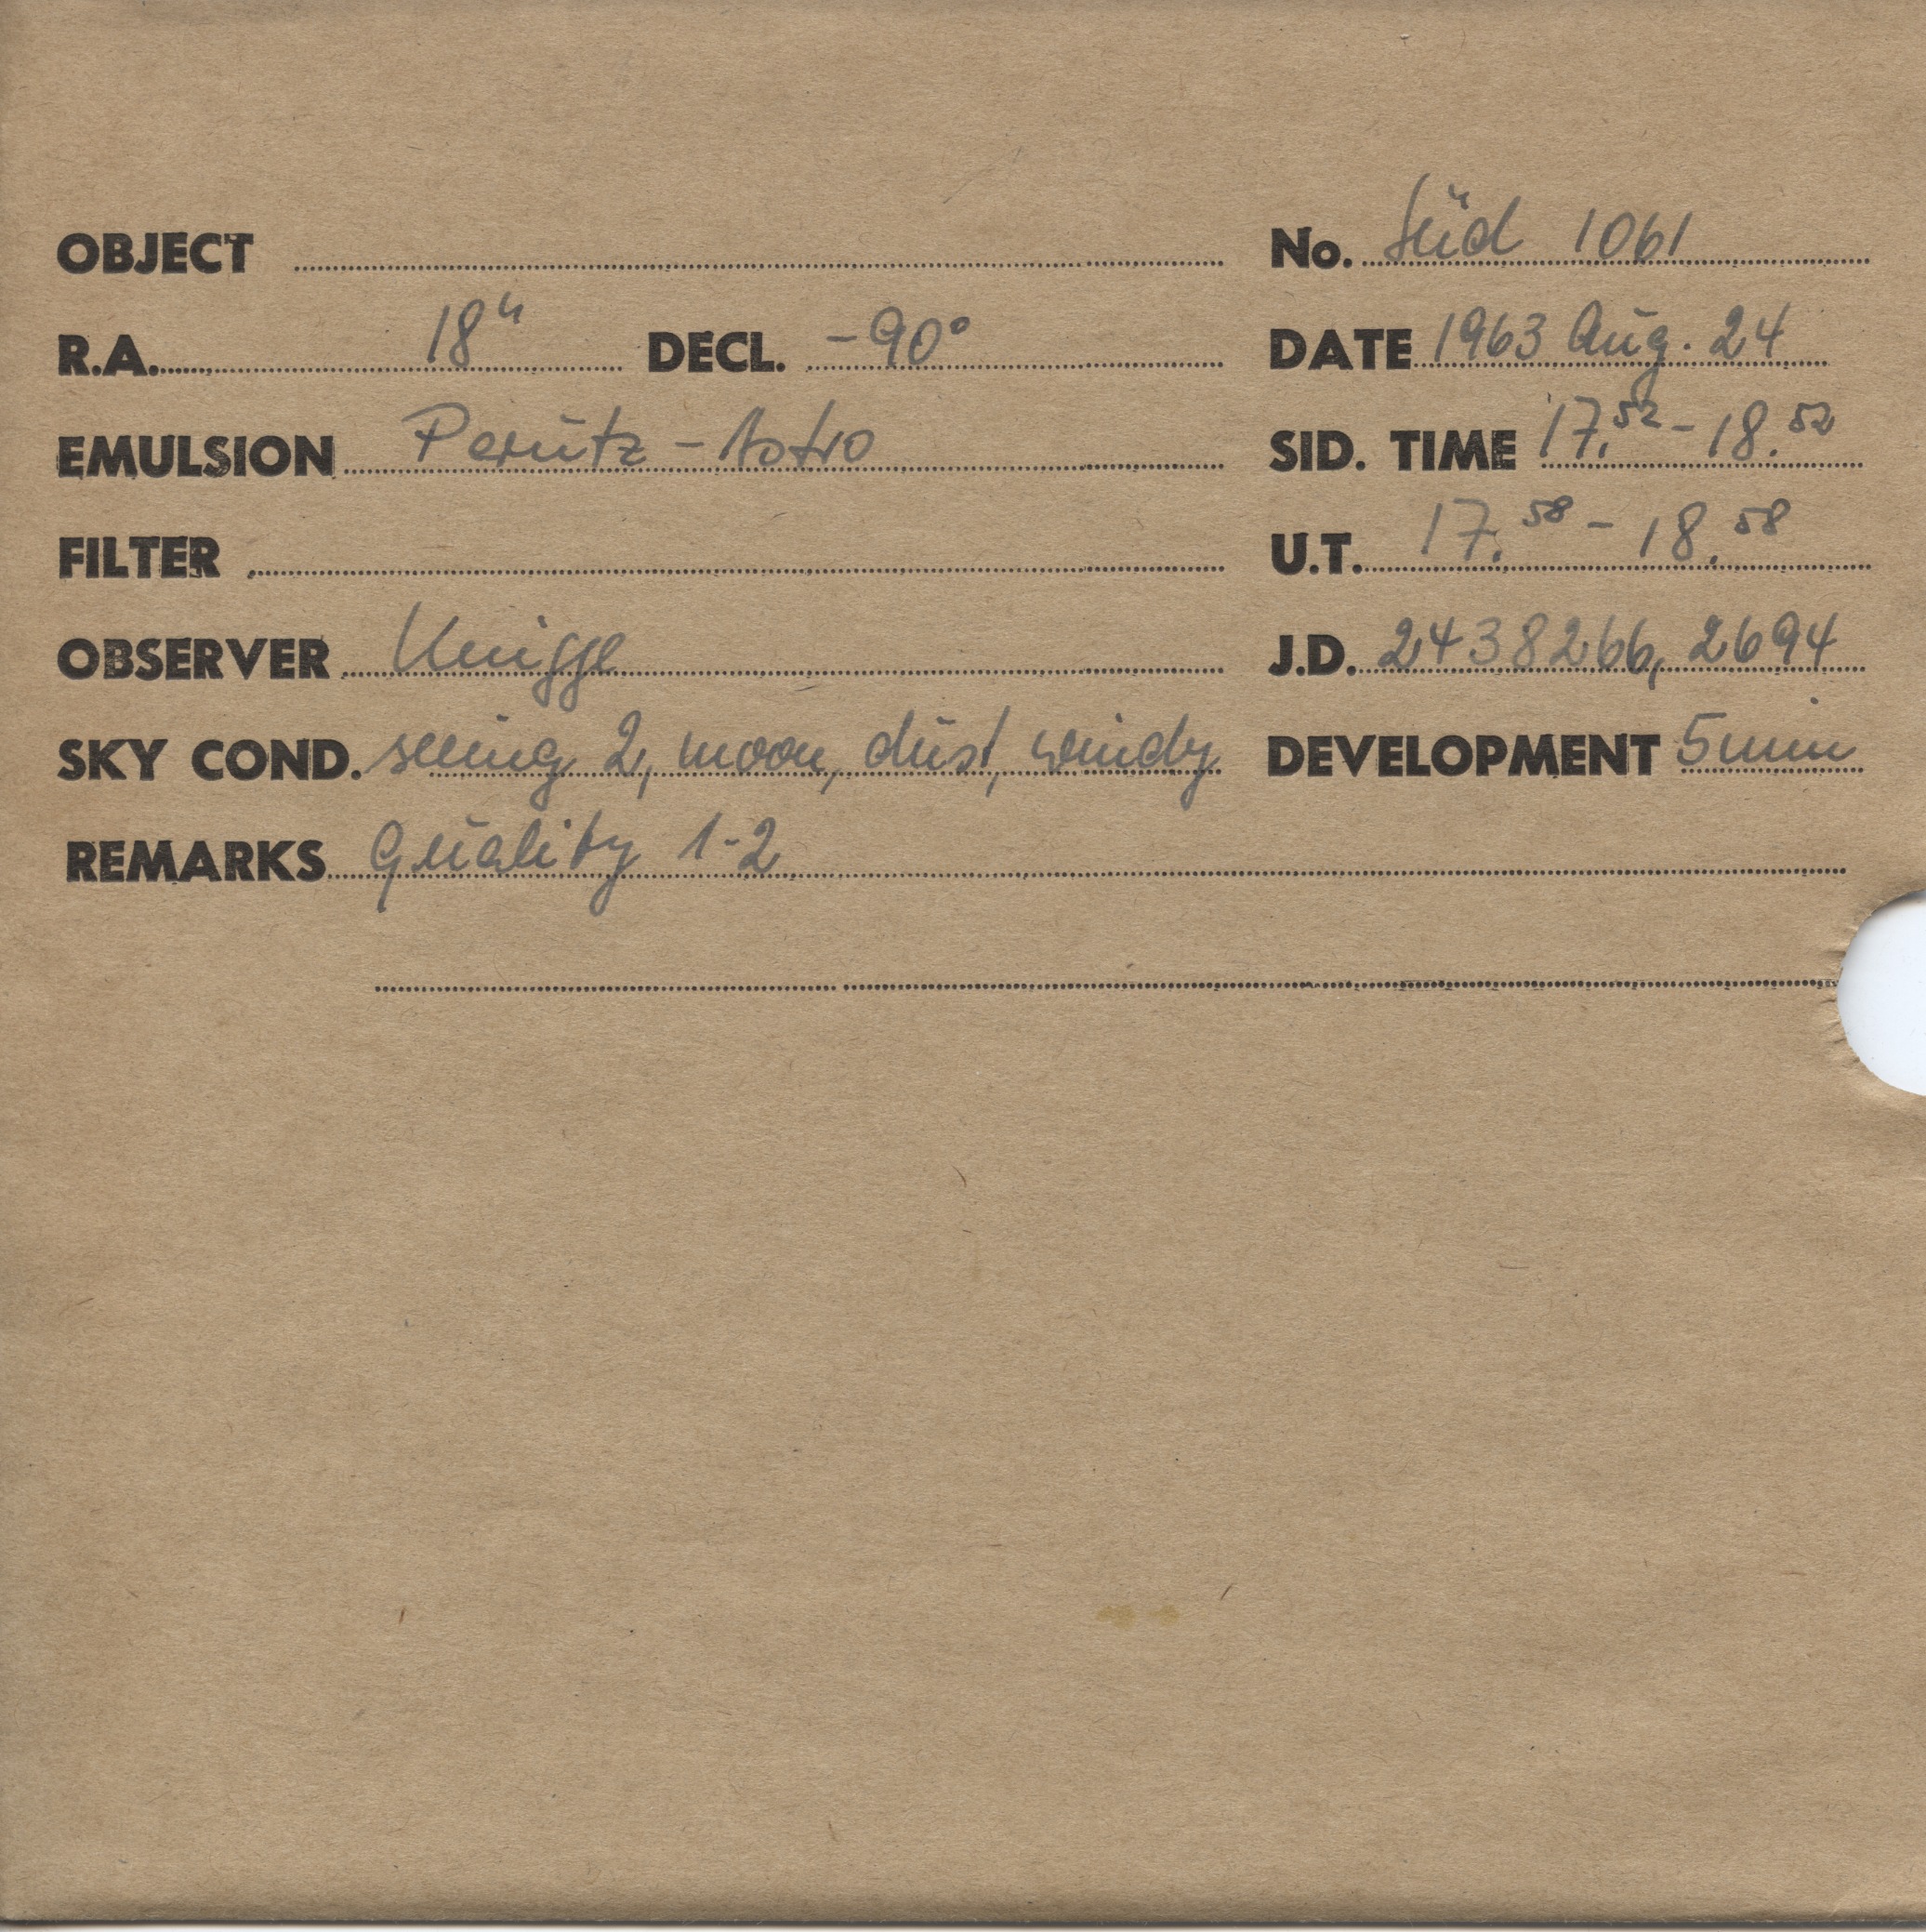 OBJECT No. Süd 1061
R.A. 18h DECL. -90° DATE 1963 Aug. 24
EMULSION Perutz - Astro SID. TIME 17.52 - 18.52
FILTER U.T. 17.58 - 18.58
OBSERVER Knigge J.D. 2438266,2694
SKY COND. seeing 2, moon, dust, windy DEVELOPMENT 5 min
REMARKS Quality 1-2